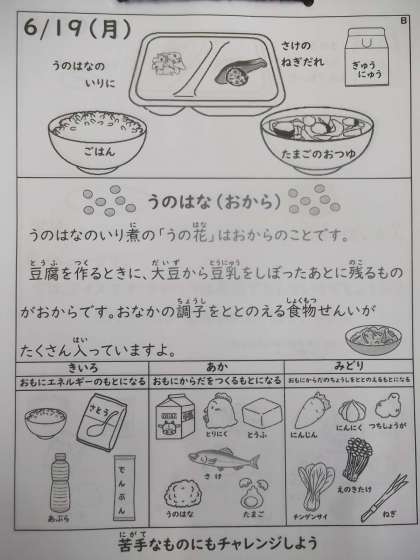 6/19(月)
B
うのはなの
いりに
さけの
ねぎだれ
ぎゅう
にゅう
ごはん
たまごのおつゆ
うのはな(おから)
うのはなのいり煮の「うの花」はおからのことです。
豆腐を作るときに、大豆から豆乳をしぼったあとに残るもの
がおからです。おなかの調子をととのえる食物せんいが
たくさん入っていますよ。
きいろ
おもにエネルギーのもとになる
さとう
あぶら
でんぷん
あか
おもにからだをつくるもとになる
とりにく
とうふ
さけ
うのはな
たまご
みどり
おもにからだのちょうしをととのえるもとになる
にんじん
にんにく
つちしょうが
チンゲンサイ
えのきたけ
ねぎ
苦手なものにもチャレンジしよう